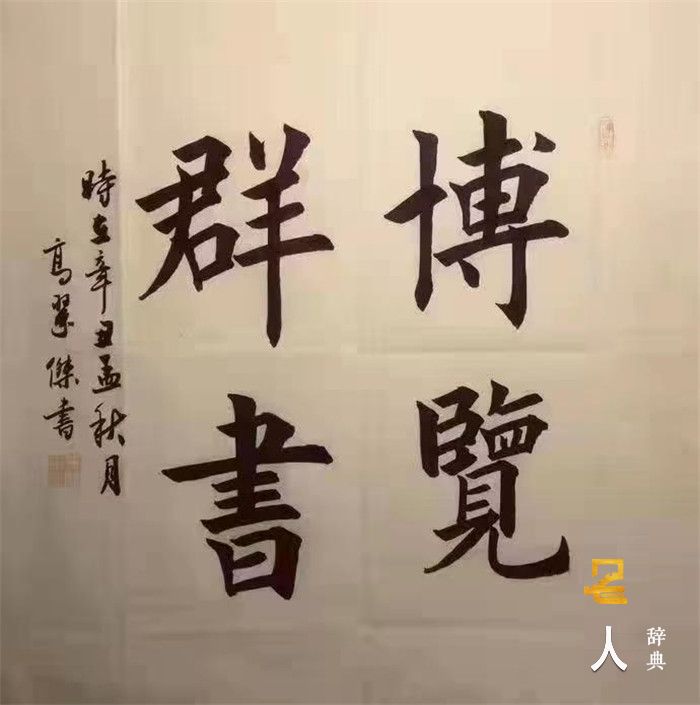 博覽
群書
時在辛丑孟秋月
高翠傑書
名人
辞典